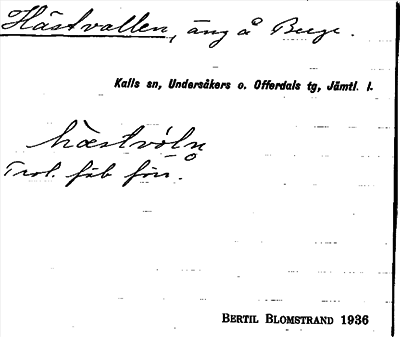 Hästvallen, äng å Berge.
Kalls sn, Undersåkers o. Offerdals tg, Jämtl. l.
hæstvôlņ
Trol. fäb förr.
BERTIL BLOMSTRAND 1936